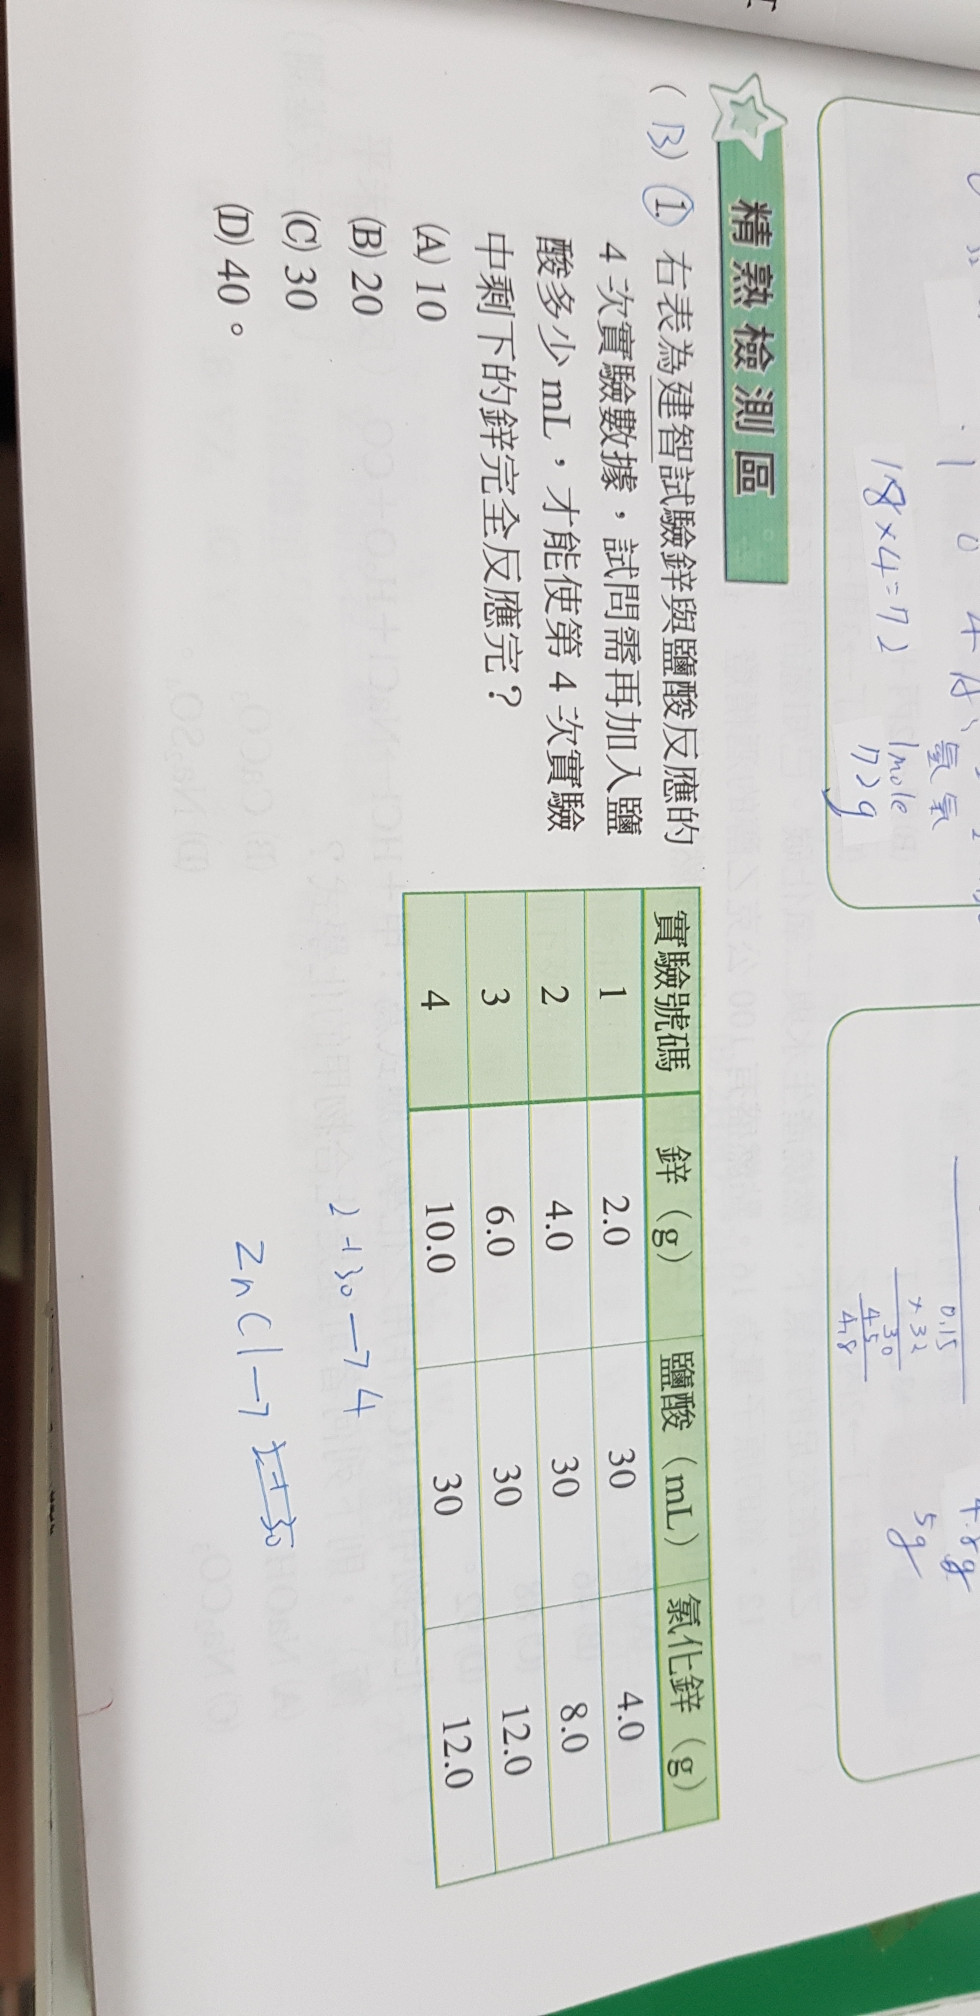 18×4=72
1mole
72g
氫氣
0.15
×32
30
45
4.8
4.8g
5g
精熟檢測區
(B) 1. 右表為建智試驗鋅與鹽酸反應的
4 次實驗數據，試問需再加入鹽
酸多少 mL，才能使第 4 次實驗
中剩下的鋅完全反應完？
(A) 10
(B) 20
(C) 30
(D) 40。
實驗號碼 鋅（g） 鹽酸（mL） 氯化鋅（g）
1 2.0 30 4.0
2 4.0 30 8.0
3 6.0 30 12.0
4 10.0 30 12.0
2+30→4
ZnCl→